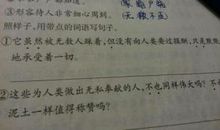 ③形容待人非常细心周到。(无微不至)
照样子，用带点的词语写句子。
①它虽然被无数人踩着，但没有向人类要过报酬，只是默默
地承受着一切。
②这些为人类做出无私奉献的人，不也同样伟大吗？
泥土一样值得称赞吗？